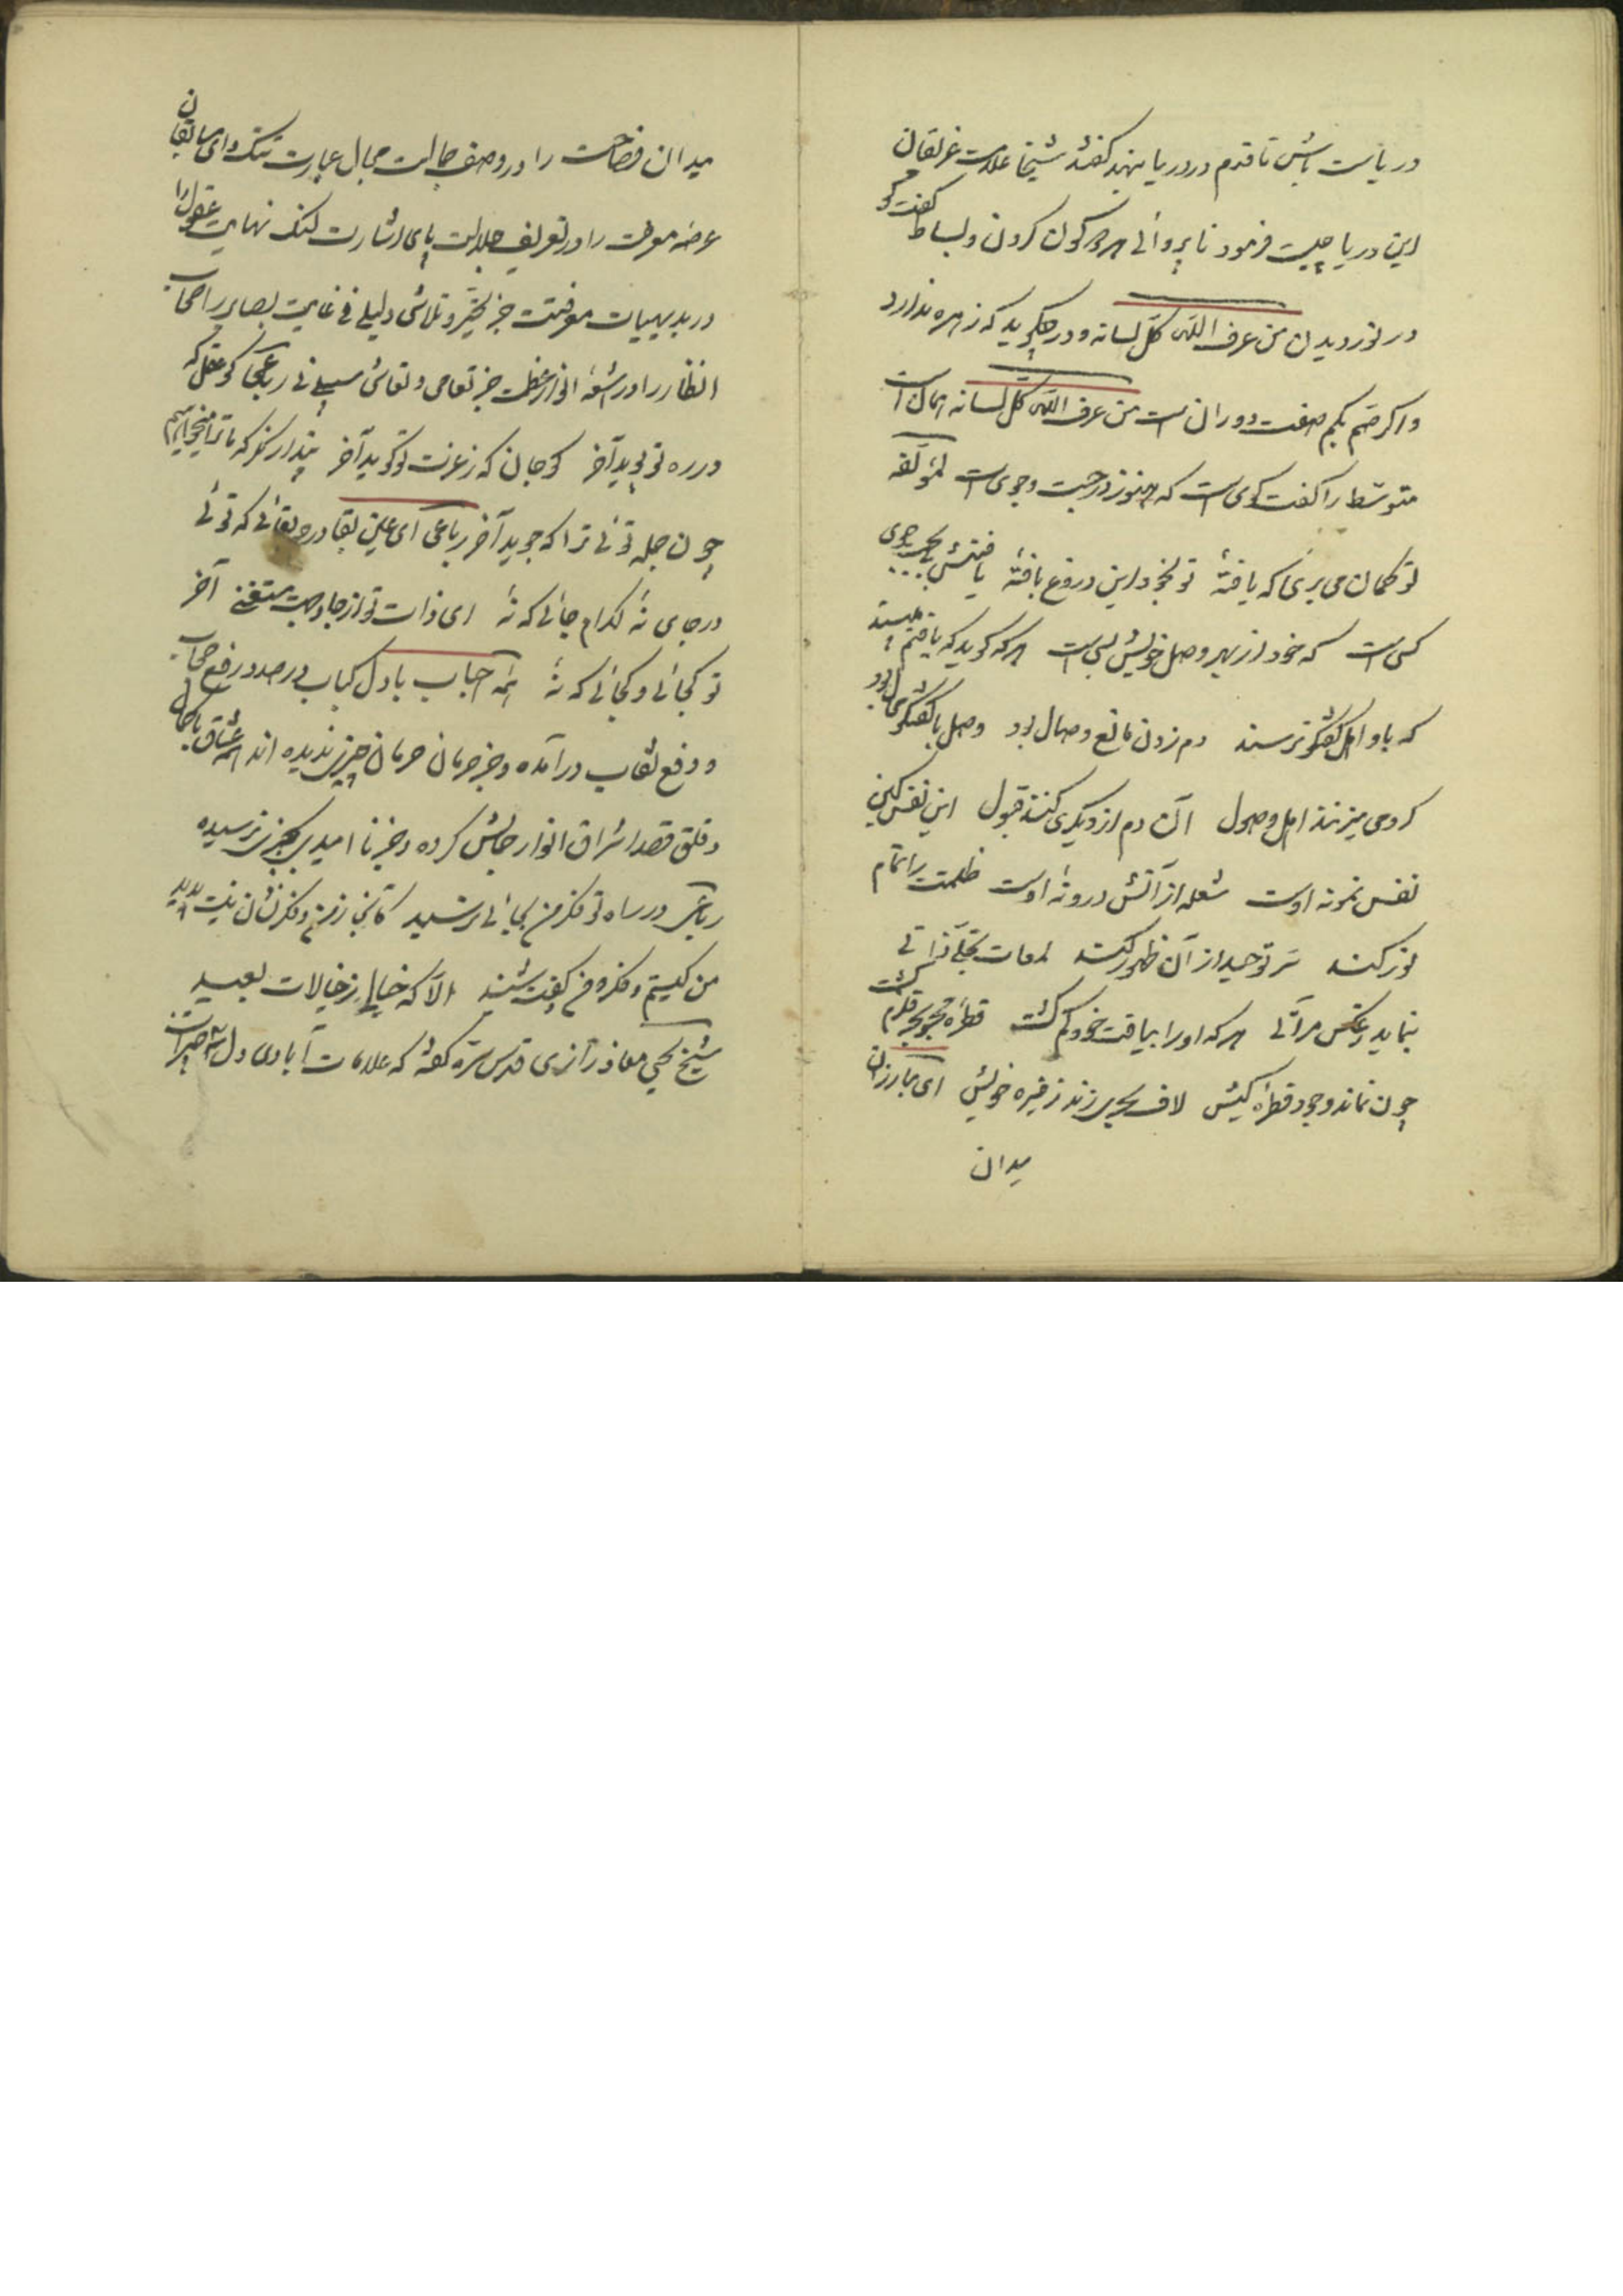 در یاست باش تا قدم در دریا نهند گفتند شیخا علامت غرقان
این دریا چیست فرمود ناپروائی هر دو کون کردن و بساط گفت و گو
در نوردیدن من عرف الله کل لسانه و در چگوید که زهره ندارد
و اگر صم بکم صفت دوران است من عرف الله کل لسانه امان است
متوسط را گفت گوی است که هنوز در جست و جوی است لمؤلفه
تو گمان می بری که یافتهٔ تو بخود این دروغ بافتهٔ یافتنش بجست جوی
کسی است که خود از بهر وصل خویش بس است هر که گوید که یافتم
که باو اهل گفتگو نرسند دم زدن مانع وصال بود وصل با گفتگوی بود
کر دمی میزنند اهل وصول آن دم از دیگری کنند قبول این نفس کین
نفس نمونه اوست شعله از آتش درونهٔ اوست ظلمت را تمام
نور کند سر توحید از آن ظهور کند لمعات تجلی ذاتی
بنماید بعکس مرآتی هر که او را بیافت خود گم گشت قطره محو بحر قلزم گشت
چون نماند وجود قطره کیش لاف بحری زند ز قیره خویش ای مبارزان
میدان
میدان فصاحت را در وصف جمالت مجال عبارت تنک و ای سابقان
عرضهٔ معرفت را در تعریف جلالت پای اشارت لنک نهایت عقول را
در بدیهیات معرفتت جز تحیر و تلاشی دلیلی نی غایت بصایر اصحاب
انظار را در اشعهٔ انوار عظمت جز تعامی و تعاشی سبیلی نی رباعی کو عقل که
در ره تو پوید آخر کو جان که ز عزت تو گوید آخر پندار نگر که ما ترا میجوئیم
چون جمله توئی ترا که جوید آخر رباعی ای عین بقا در چه بقائی که توئی
در جای نهٔ کدام جائی که نهٔ ای ذات تو از جا و جهت مستغنی آخر
تو کجائی و کجائی که نهٔ ائمه احباب با دل کباب در صدد رفع حجاب
و دفع نقاب در آمده و جز حرمان حرمان چیزی ندیده اند عشاق باکمال
و قلق قصد اشراق انوار جمالش کرده و جز نا امیدی بچیزی نرسیده
رباعی در ساه تو فکر من بجائی نرسید کانجا ز من و فکر نشان نیست پدید
من کیستم و فکره من کیفیت شنید الا که خیالی ز خیالات بعید
شیخ یحیی معاذ رازی قدس سره گفته که علامات آبادی دل